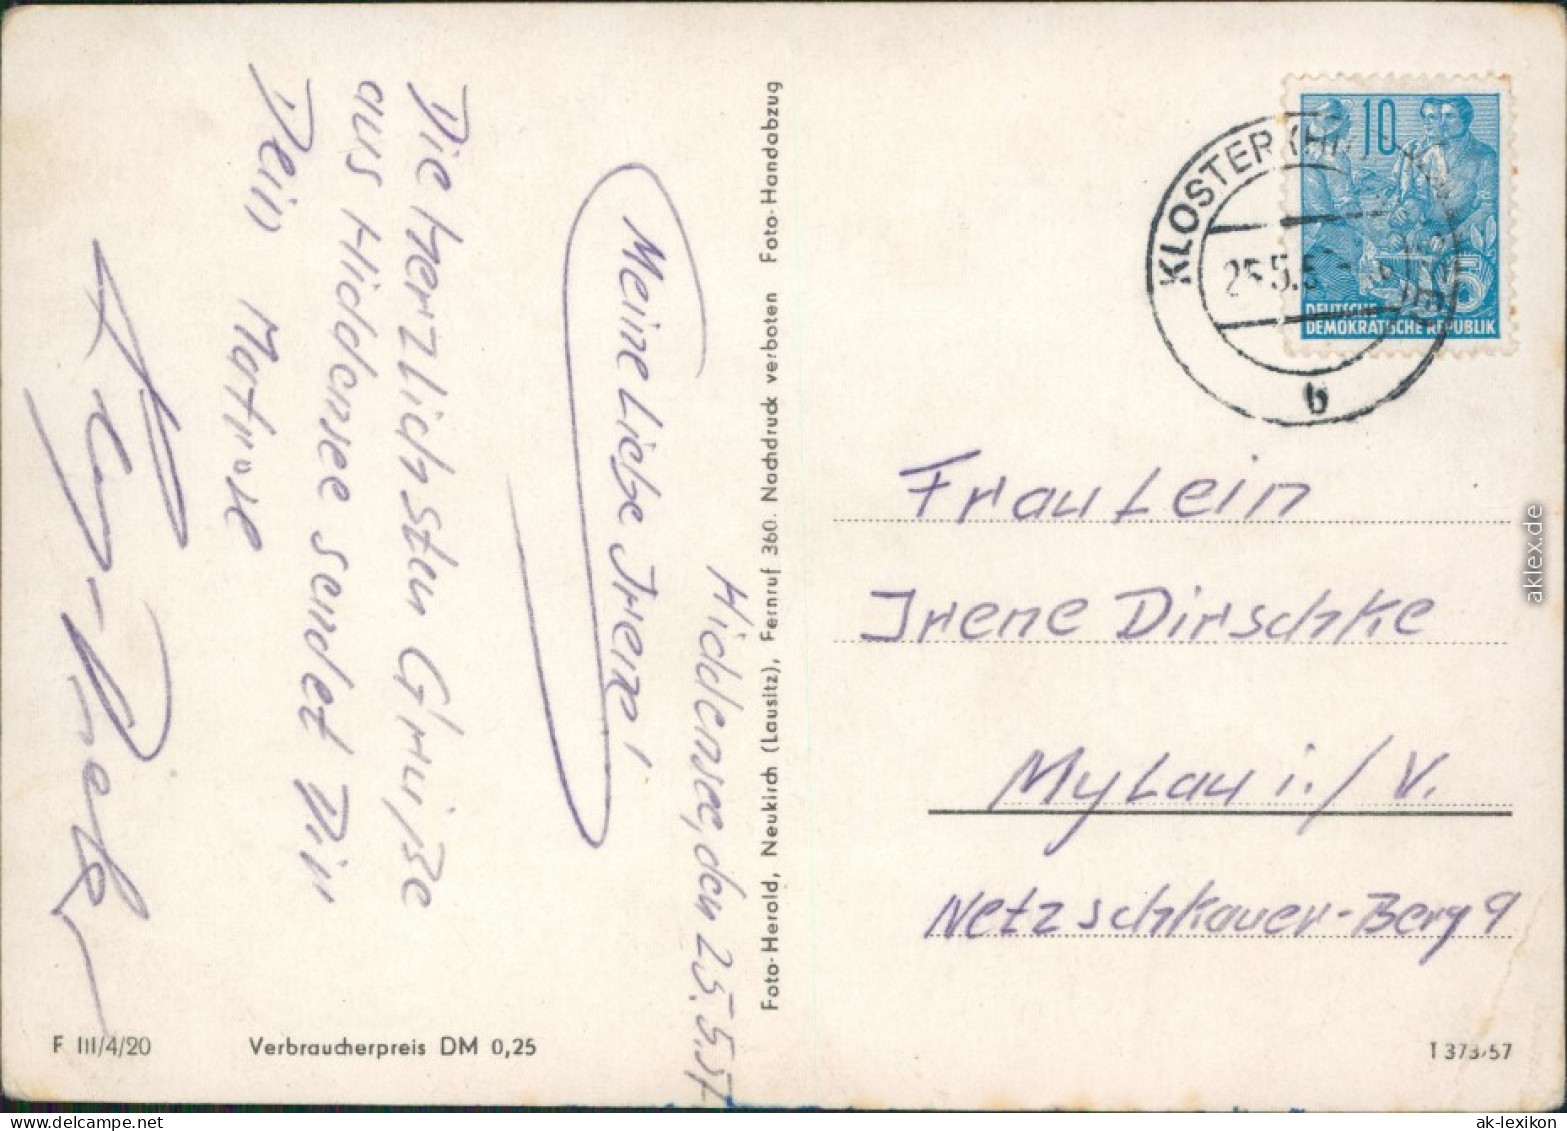 Hiddensee, den 25.5.57
Meine Liebe Irene!
Die herzlichsten Grüße
aus Hiddensee sendet Dir
Dein Matrose
Foto-Herold, Neukirch (Lausitz), Fernruf 360. Nachdruck verboten Foto-Handabzug
F III/4/20
Verbraucherpreis DM 0,25
KLOSTER
25.5.5
b
10
5
DEUTSCHE
DEMOKRATISCHE REPUBLIK
Fraulein
Irene Dirschke
Mylau i./V.
Netzschkauer-Berg 9
T 373/57
aklex.de
ak-lexikon